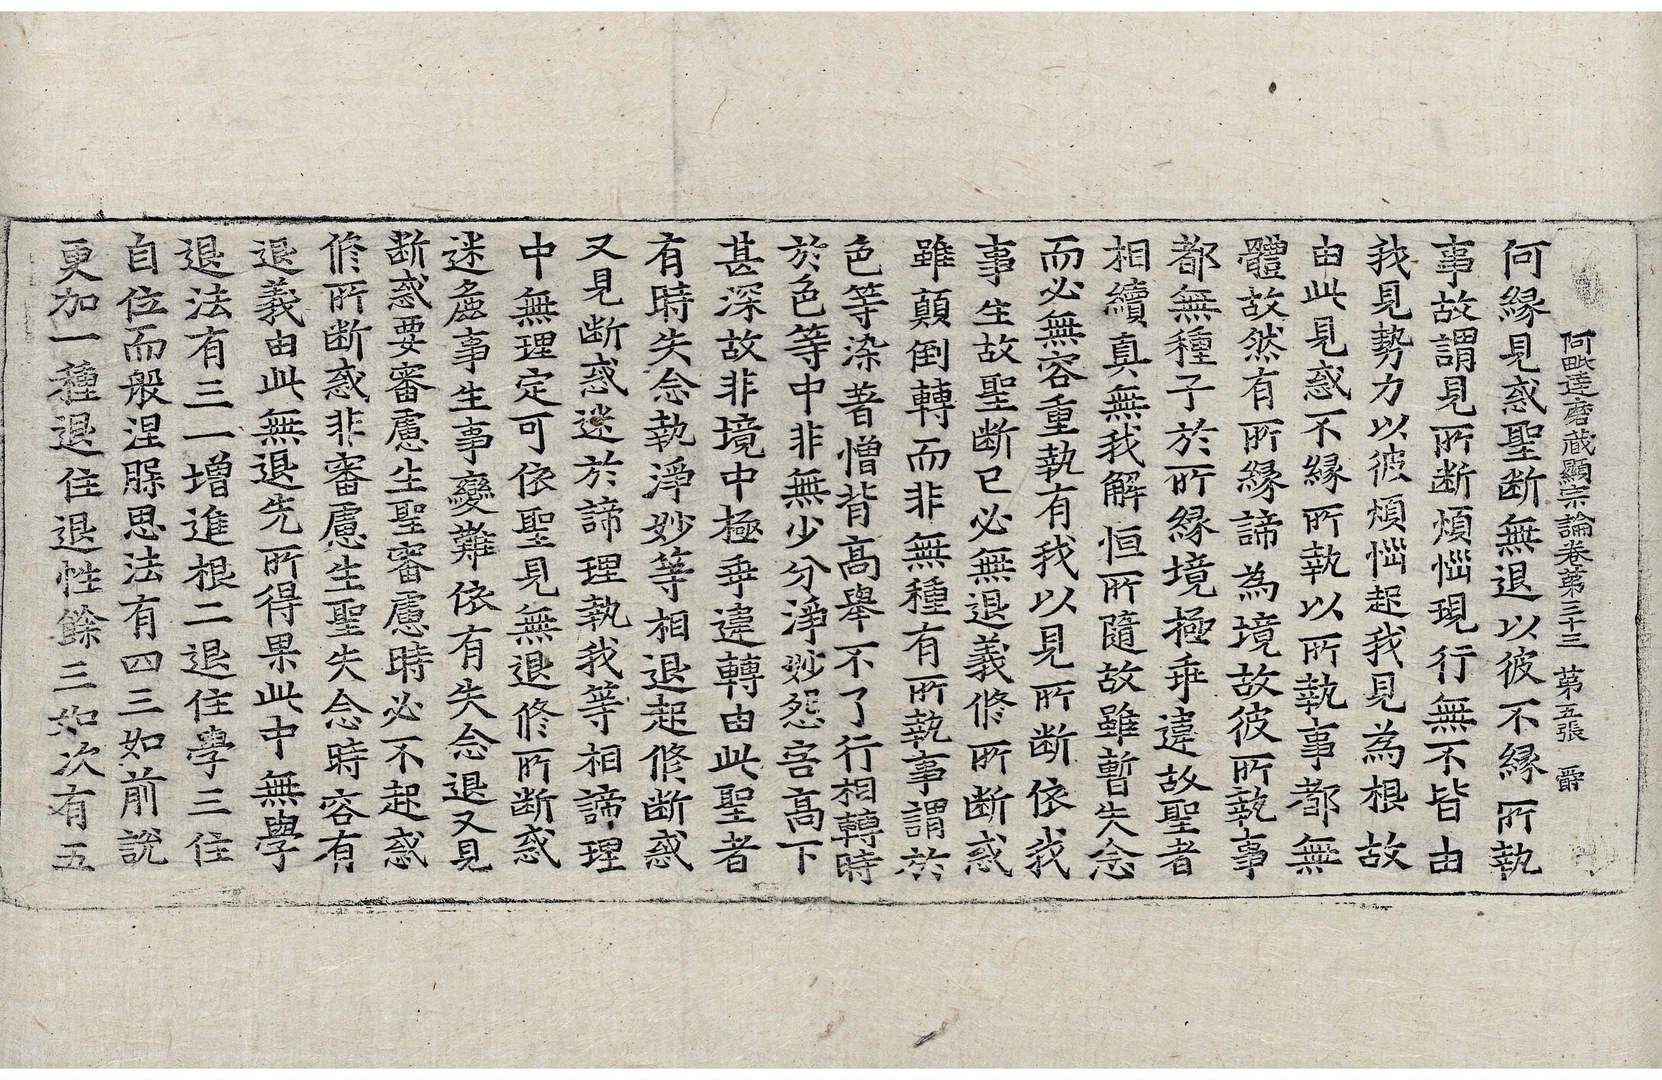 阿毗達磨藏顯宗論卷第三十三 第五張 爵
何緣見惑聖斷無退以彼不緣所執
事故謂見所斷煩惱現行無不皆由
我見勢力以彼煩惱起我見為根故
由此見惑不緣所執以所執事都無
體故然有所緣諦為境故彼所執事
都無種子於所緣境極乖違故聖者
相續真無我解恒所隨故雖暫失念
而必無容重執有我以見所斷依我
事生故聖斷已必無退義修所斷惑
雖顛倒轉而非無種有所執事謂於
色等染著憎背高舉不了行相轉時
於色等中非無少分淨妙怨害高下
甚深故非境中極乖違轉由此聖者
有時失念執淨妙等相退起修斷惑
又見斷惑迷於諦理執我等相諦理
中無理定可依聖見無退修所斷惑
迷麁事生事變難依有失念退又見
断惑要審慮生聖審慮時必不起惑
修所断惑非審慮生聖失念時容有
退義由此無退先所得果此中無學
退法有三一增進根二退住學三住
自位而般涅槃思法有四三如前說
更加一種退住退性餘三如次有五